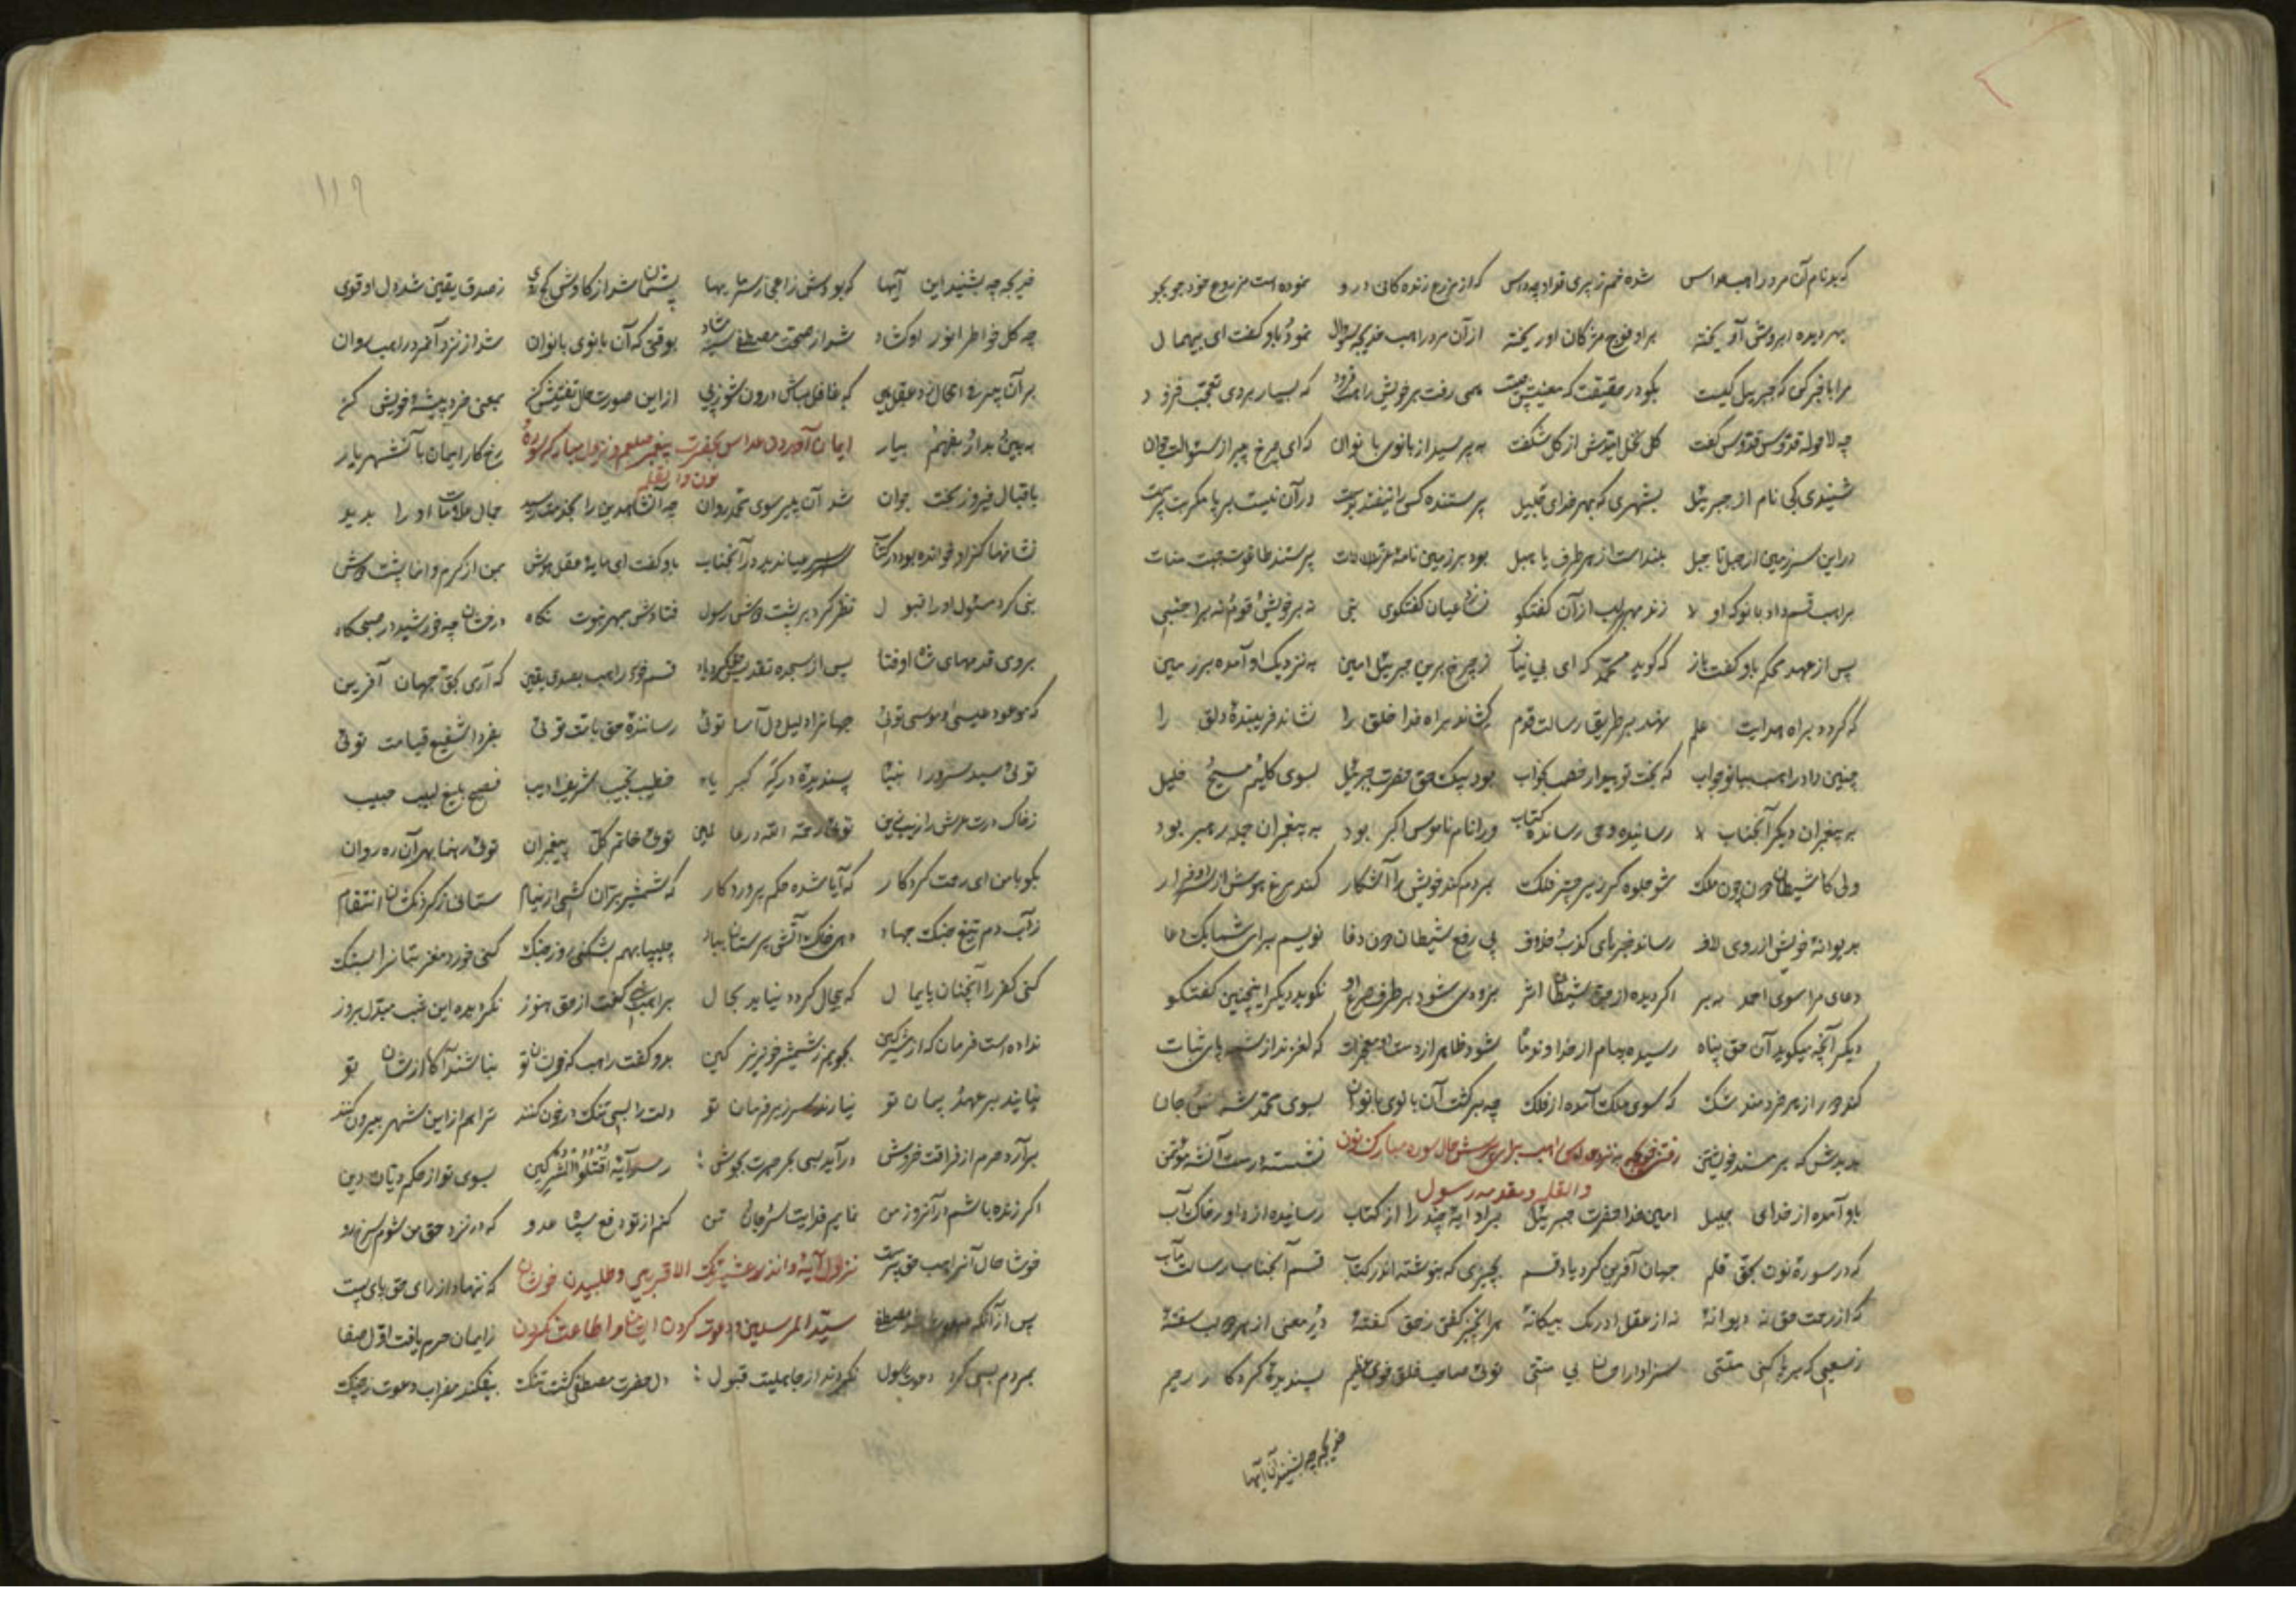 که بد نام آن مرد راهب عداس شده خم ز پیری قد او چه داس که از مزرع زندگانی درو نموده است مزروع خود جو بجو
بهر دیده ابروش آویخته بر او فوج مژگان او ریخته از آن مرد راهب خدیجه سوال نمود و باو گفت ای بیهمال
مرا با خبر کن که جبریل کیست بگو در حقیقت که معنیش چیست همی رفت بر خویش راهب فرود که بسیار بودی تعجب فزود
چه لاحوله قدوس قدوس گفت گل نخل از کل شگفت به پرسید از بانوی بانوان که ای چرخ پیر از سئوالت جوان
شنیدی کی نام از جبرئیل بشهری که بهر خدای جلیل پرستنده کس را نیفتد بدست در آن نیست بر پا مگر بت پرست
در این سرزمین از جبل تا جبل بلند است از هر طرف یا هبل بود بر زمین پرستند طاغوت جبت منات
براهب قسم داد بانو که او لا زند مهر لب از آن گفتگو نسازد عیان گفتگوی نبی نه بر خویش و قوم نه بر اجنبی
پس از عهد محکم باو گفت باز که گوید محمد که ای بی نیاز ز چرخ برین جبرئیل امین به نزدیک او آمده بر زمین
که گردد براه هدایت علم نهد بر طریق رسالت قدم کشاند براه خدا خلق را نشاند فریبنده دلق را
چنین داد راهب ببانو جواب که بخت تو بیدار خصمت بخواب بود پیک حق حضرت جبرئیل بسوی کلیم مسیح خلیل
به پیغمبران دیگر آنجناب لا رسانیده وحی رسانده کتاب ورا نام ناموس اکبر بود به پیغمبران جمله رهبر بود
ولی گاه شیطان دون چون ملک شود جلوه گر زیر چتر فلک بمردم کند خویش را آشکار کند مرغ هوش از سر او فرار
بدیوانه خویش از روی لاف رساند خبرهای کذب و خلاف پی رفع شیطان دون دغا نویسم برای شما یک دعا
دعای مرا سوی احمد ببر اگر دیده از جن و شیطان اثر بزودی شود بر طرف صرع او نگوید دیگر اینچنین گفتگو
دیگر آنچه میگوید آن حق پناه رسیده پیام از خداوند ما شود ظاهر از دست او معجزات که لغزند از پای ثبات
کند دور از هر فردمند شک که سوی ملک آمده از فلک چه برگشت آن بانوی بانوان بسوی محمد شه انس و جان
بدیدش که بر مسند خویشتن رفتن خدیجه به نزد عداس راهب برای پرسش حال سوره مبارکه نون نشسته درست آن شه مؤتمن
والقلم و مقدمه رسول
باو آمده از خدای جلیل امین خدا حضرت جبرئیل بر او آیه چند را از کتاب رسانیده از داور خاک و آب
که در سورهٔ نون بحق قلم جهان آفرین کرد یاد قسم بچیزی که بنوشته اندر کتاب قسم آنجناب رسالت مآب
که از رحمت حق نه دیوانهٔ نه از عقل ادراک بیگانهٔ هر آنچیز گفتی ز حق گفتهٔ در معنی از بهر حق سفتهٔ
ز سعیی که بر پا کنی متقی سزاوار احسان بی منتی توئی صاحب خلق خوی عظیم پسندیدهٔ کردگار رحیم
خدیجه چه بشنید آن آیها
۱۱۹
خدیجه چه بشنید این آیها که بودش ز اعجاز سرمایها پشیمان شد از کاوش کج روی ز صدق یقین شد دل او قوی
چه گل خواطر انور او گشاد شد از صحت مصطفی سینه شاد بوقتی که آن بانوی بانوان شد از نزد آن مرد راهب روان
بر آن پیر فرد عقل پی که غافل مباش درون شو ز پی از این صورت حال تفتیش کن بمعنی خرد پیشهٔ خویش کن
به بین بد از و بفهم بیار ایمان آوردن عداس بحضرت پیغمبر صلعم و نزول مبارکه سورهٔ رخ کار ایمان با آنشهریار
نون والقلم
باقبال فیروز بخت جوان شد آن پیر سوی محمد روان چه آن شاهدین را بخدمت رسید جمال ملاقات او را بدید
نشانها کز او خوانده بود در کتاب سراسر عیان دید در آنجناب باو گفت ای مایهٔ عقل و هوش بمن از کرم وانما پشت دوش
نبی کرد مسئول او را قبول نظر کرد بر پشت دوش رسول فتادش بمهر نبوت نگاه درخشان چه خورشید در صبحگاه
بروی قدمهای شاه اوفتاد پس از سجده تقدیس حق کرد یاد قسم خورد راهب بصدق یقین که آری بحق جهان آفرین
که موعود عیسی و موسی توئی جهانرا دلیل دل آسا توئی رسانندهٔ حق بامت توئی بفردا شفیع قیامت توئی
توئی سید سرور انبیا پسندیدهٔ درگه کبریاء خطیب نجیب شریف ادیب فصیح بلیغ لبیب حبیب
ز خاک درت عرش را زیب و زین توئی رحمة الله در عالمین توئی خاتم کل پیغمبران توئی رهنما بهر آن ره روان
بگو با من ای رحمت کردگار که آیا شده حکم پروردگار که شمشیر بران کشی از نیام ستانی ز گردنکشان انتقام
ز آب دم تیغ جنگ جهاد دهی خاک آتش پرستان بباد چلیپا بهم بشکنی روز جنگ کنی خورد مغز بتانرا بسنگ
کنی کفر را آنچنان پایمال که بیحال گردد نیاید بحال براهب نبی گفت از حق هنوز نگردیده این شب مبدل بروز
نداده است فرمان که از مشرکین بجویم ز شمشیر خونریز کین بدو گفت راهب که خویشان تو نباشند آگاه از شان تو
نپایند بر عهد و پیمان تو نیارند سر زیر فرمان تو دلت را بسی تنگ در خون کنند ترا هم از این شهر بیرون کنند
برآرد حرم از فراقت خروش درآید بسی بحر حیرت بجوش رسد آیهٔ اقتلوا المشرکین بسوی تو از حکم دیان دین
اگر زنده باشم در آنروز من نمایم فدایت سر و جان تن کنم از تو دفع سپاه عدو که در نزد حق من شوم سرخ رو
خوشا حال آنراهب حق پرست نزول آیهٔ وانذر عشیرتک الاقربین و طلبیدن خویشان که ننهاد از رای حق پای پست
پس از آنکه مصطفی سید المرسلین و دعوت کردن ایشان و اطاعت نکردن ز ایمان حرم یافت اول صفا
بمردم بسی کرد دعوت رسول نکردند از جاهلیت قبول دل حضرت مصطفی گشت تنگ بیفکند مضراب دعوت ز چنگ